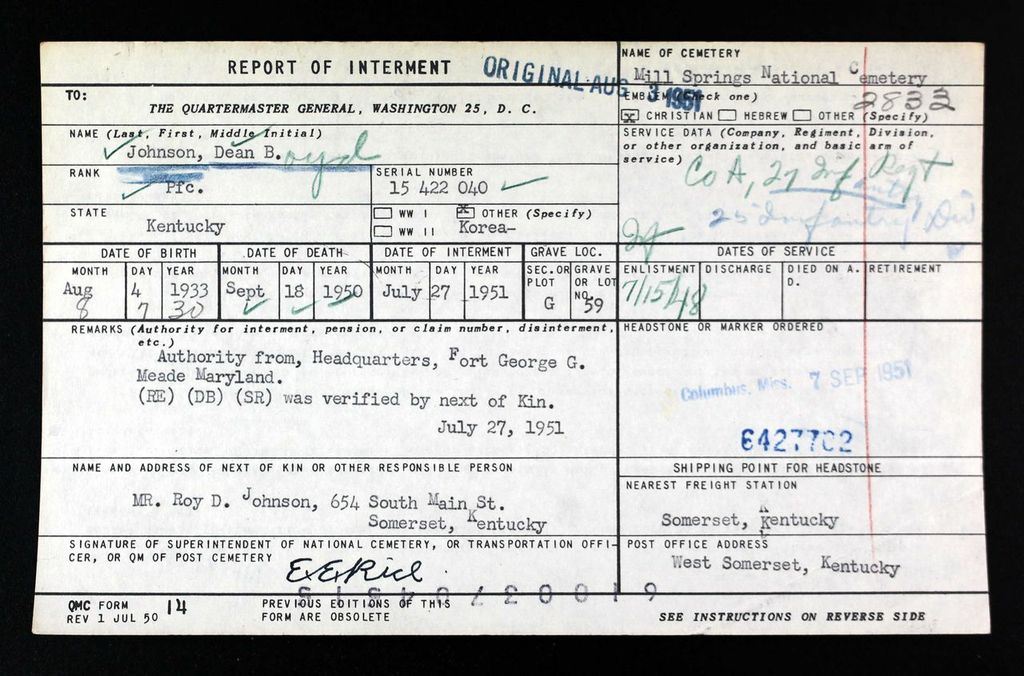 REPORT OF INTERMENT
ORIGINAL AUG 3 1951
TO:
THE QUARTERMASTER GENERAL, WASHINGTON 25, D. C.
NAME (Last, First, Middle Initial)
Johnson, Dean B.oyd
RANK
Pfc.
SERIAL NUMBER
15 422 040
STATE
Kentucky
WW I
X OTHER (Specify)
WW II
Korea-
DATE OF BIRTH
DATE OF DEATH
DATE OF INTERMENT
GRAVE LOC.
MONTH DAY YEAR
MONTH DAY YEAR
MONTH DAY YEAR
SEC. OR PLOT
GRAVE OR LOT NO.
Aug 4 1933
8 7 30
Sept 18 1950
July 27 1951
G 59
REMARKS (Authority for interment, pension, or claim number, disinterment,
etc.)
Authority from, Headquarters, Fort George G.
Meade Maryland.
(RE) (DB) (SR) was verified by next of Kin.
July 27, 1951
NAME AND ADDRESS OF NEXT OF KIN OR OTHER RESPONSIBLE PERSON
MR. Roy D. Johnson, 654 South Main St.
Somerset, Kentucky
SIGNATURE OF SUPERINTENDENT OF NATIONAL CEMETERY, OR TRANSPORTATION OFFI-
CER, OR QM OF POST CEMETERY
QMC FORM 14
REV 1 JUL 50
PREVIOUS EDITIONS OF THIS
FORM ARE OBSOLETE
NAME OF CEMETERY
Mill Springs National Cemetery
2832
EMBLEM (Check one)
X CHRISTIAN HEBREW OTHER (Specify)
SERVICE DATA (Company, Regiment, Division,
or other organization, and basic arm of
service)
Co A, 27 Inf Regt
25 Infantry Div
Inf
DATES OF SERVICE
ENLISTMENT DISCHARGE DIED ON A. D. RETIREMENT
7/15/48
HEADSTONE OR MARKER ORDERED
Columbus, Miss. 7 SEP 1951
6427702
SHIPPING POINT FOR HEADSTONE
NEAREST FREIGHT STATION
Somerset, Kentucky
POST OFFICE ADDRESS
West Somerset, Kentucky
SEE INSTRUCTIONS ON REVERSE SIDE